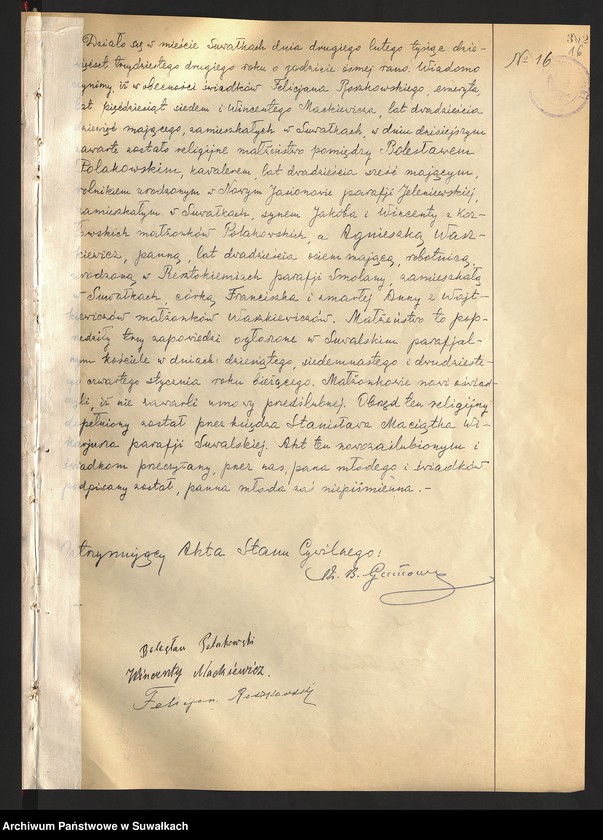 342
16
№ 16
Działo się w mieście Suwałkach dnia drugiego lutego tysiąc dzie-
więćset trzydziestego drugiego roku o godzinie ósmej rano. Wiadomo
czynimy, iż w obecności świadków Felicjana Roszkowskiego, emeryta,
lat pięćdziesiąt siedem i Wincentego Mackiewicza, lat dwadzieścia
dziewięć mającego, zamieszkałych w Suwałkach, w dniu dzisiejszym
zawarte zostało religijne małżeństwo pomiędzy Bolesławem
Polakowskim, kawalerem, lat dwadzieścia sześć mającym,
rolnikiem urodzonym w Nowym Janionowie parafji Jeleniewskiej,
zamieszkałym w Suwałkach, synem Jakóba i Wincenty z Koz-
łowskich małżonków Polakowskich, a Agnieszką Wasz-
kiewicz, panną, lat dwadzieścia osiem mającą, robotnicą,
urodzoną w Resztokiemiach parafji Smolany, zamieszkałą
w Suwałkach, córką Franciszka i zmarłej Anny z Wojt-
kiewiczów małżonków Waszkiewiczów. Małżeństwo to pop-
rzedziły trzy zapowiedzi ogłoszone w Suwalskim parafjal-
nym kościele w dniach: dziesiątego, siedemnastego i dwudzieste-
go czwartego stycznia roku bieżącego. Małżonkowie nowi oświad-
czyli, iż nie zawarli umowy przedślubnej. Obrzęd ten religijny
dopełniony został przez księdza Stanisława Maciątka Wi-
karjusza parafji Suwalskiej. Akt ten nowozaślubionym i
świadkom przeczytany, przez nas, pana młodego i świadków
podpisany został, panna młoda zaś niepiśmienna. -
Utrzymujący Akta Stanu Cywilnego:
Ks. B.
Bolesław Polakowski
Wincenty Mackiewicz.
Felicjan Roszkowski
Archiwum Państwowe w Suwałkach